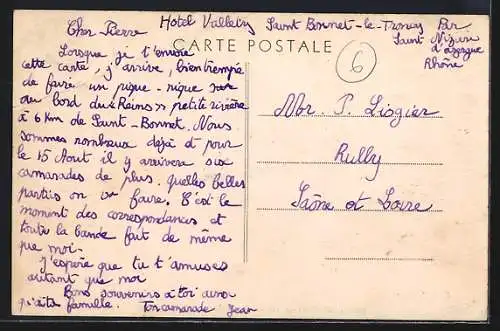 Cher Pierre
Hotel Valletry Saint Bonnet-le-Troncy Par
Saint-Nizier
d'azergue
Rhône
CARTE POSTALE
6
Lorsque je t'envoie
cette carte, j'arrive, bien trempé
de faire un pique-nique
au bord du "Reins" petite rivière
à 6 Km de Saint-Bonnet. Nous
sommes nombreux déjà et pour
le 15 Août il y arrivera six
camarades de plus. Quelles belles
parties on va faire. C'est le
moment des correspondances et
toute la bande fait de même
que moi.
J'espère que tu t'amuses
autant que moi
Bons souvenirs à toi ainsi
qu'à ta famille. Ton camarade Jean
Mr. P. Lisgier
Rully
Saône et Loire